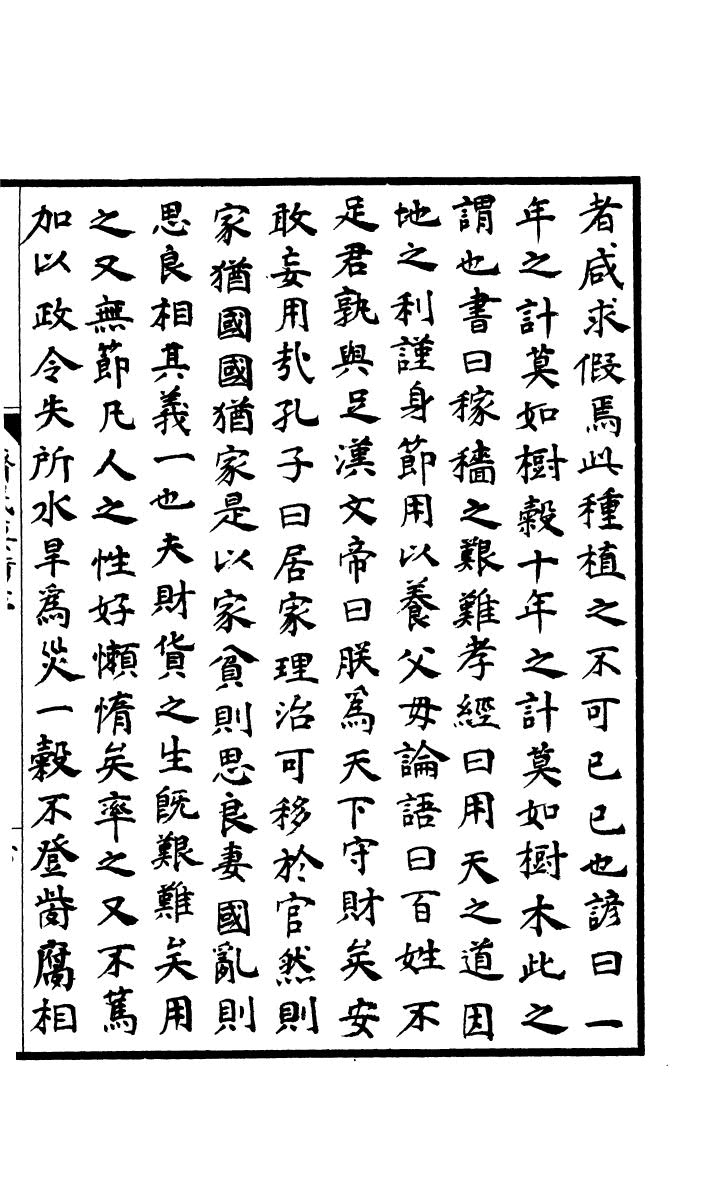 者咸求假焉此種植之不可已已也諺曰一
年之計莫如樹穀十年之計莫如樹木此之
謂也書曰稼穡之艱難孝經曰用天之道因
地之利謹身節用以養父母論語曰百姓不
足君孰與足漢文帝曰朕為天下守財矣安
敢妄用㢤孔子曰居家理治可移於官然則
家猶國國猶家是以家貧則思良妻國亂則
思良相其義一也夫財貨之生既艱難矣用
之又無節凡人之性好懶惰矣率之又不篤
加以政令失所水旱為災一穀不登胔腐相